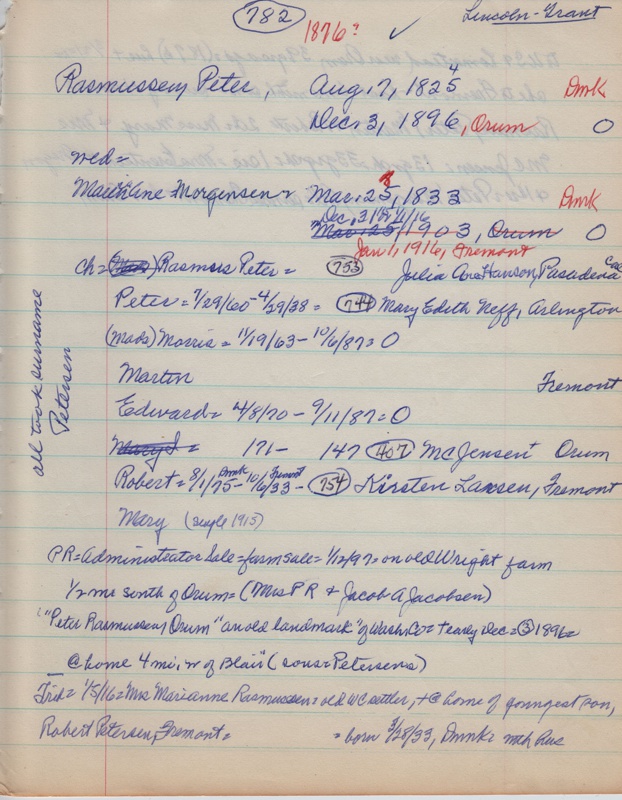 782
1876?
✓
Lincoln-Grant
Rasmussen, Peter, Aug. 7, 1825 4 Dmk
Dec. 3, 1896, Orum O
wed=
Marianne Morgensen= Mar. 25, 8 1833 Dmk
Dec. 31
Mar. 25, 1903, Orum O
Jan 1, 1916, Fremont
ch= Rasmus Peter= 753 Julia Hanson, Pasadena Cal
Peter= 7/29/60-4/29/38= 744 Mary Edith Neff, Arlington
(Mads) Morris= 11/19/63-10/6/87=O
Martin Fremont
Edward= 4/8/70-9/11/87=O
171- 147 407 McJensen Orum
Robert= 8/1/75- Dmk 10/6/33- Fremont 754 Kirsten Larsen, Fremont
Mary (single 1915)
all took surname
Petersen
PR=administrator Sale=farm sale=1/12/97=on old Wright farm
1/2 mi south of Orum=(Mrs PR & Jacob A Jacobsen)
"Peter Rasmussen, Orum "an old landmark" of Wash Co= + early Dec= 3 1896=
@ home 4 mi. w of Blair" (sons=Petersens)
Trib= 1/5/16=Mrs Marianne Rasmussen=old WC settler, +@ home of youngest son,
Robert Petersen, Fremont= =born 3/28/33, Dmk=